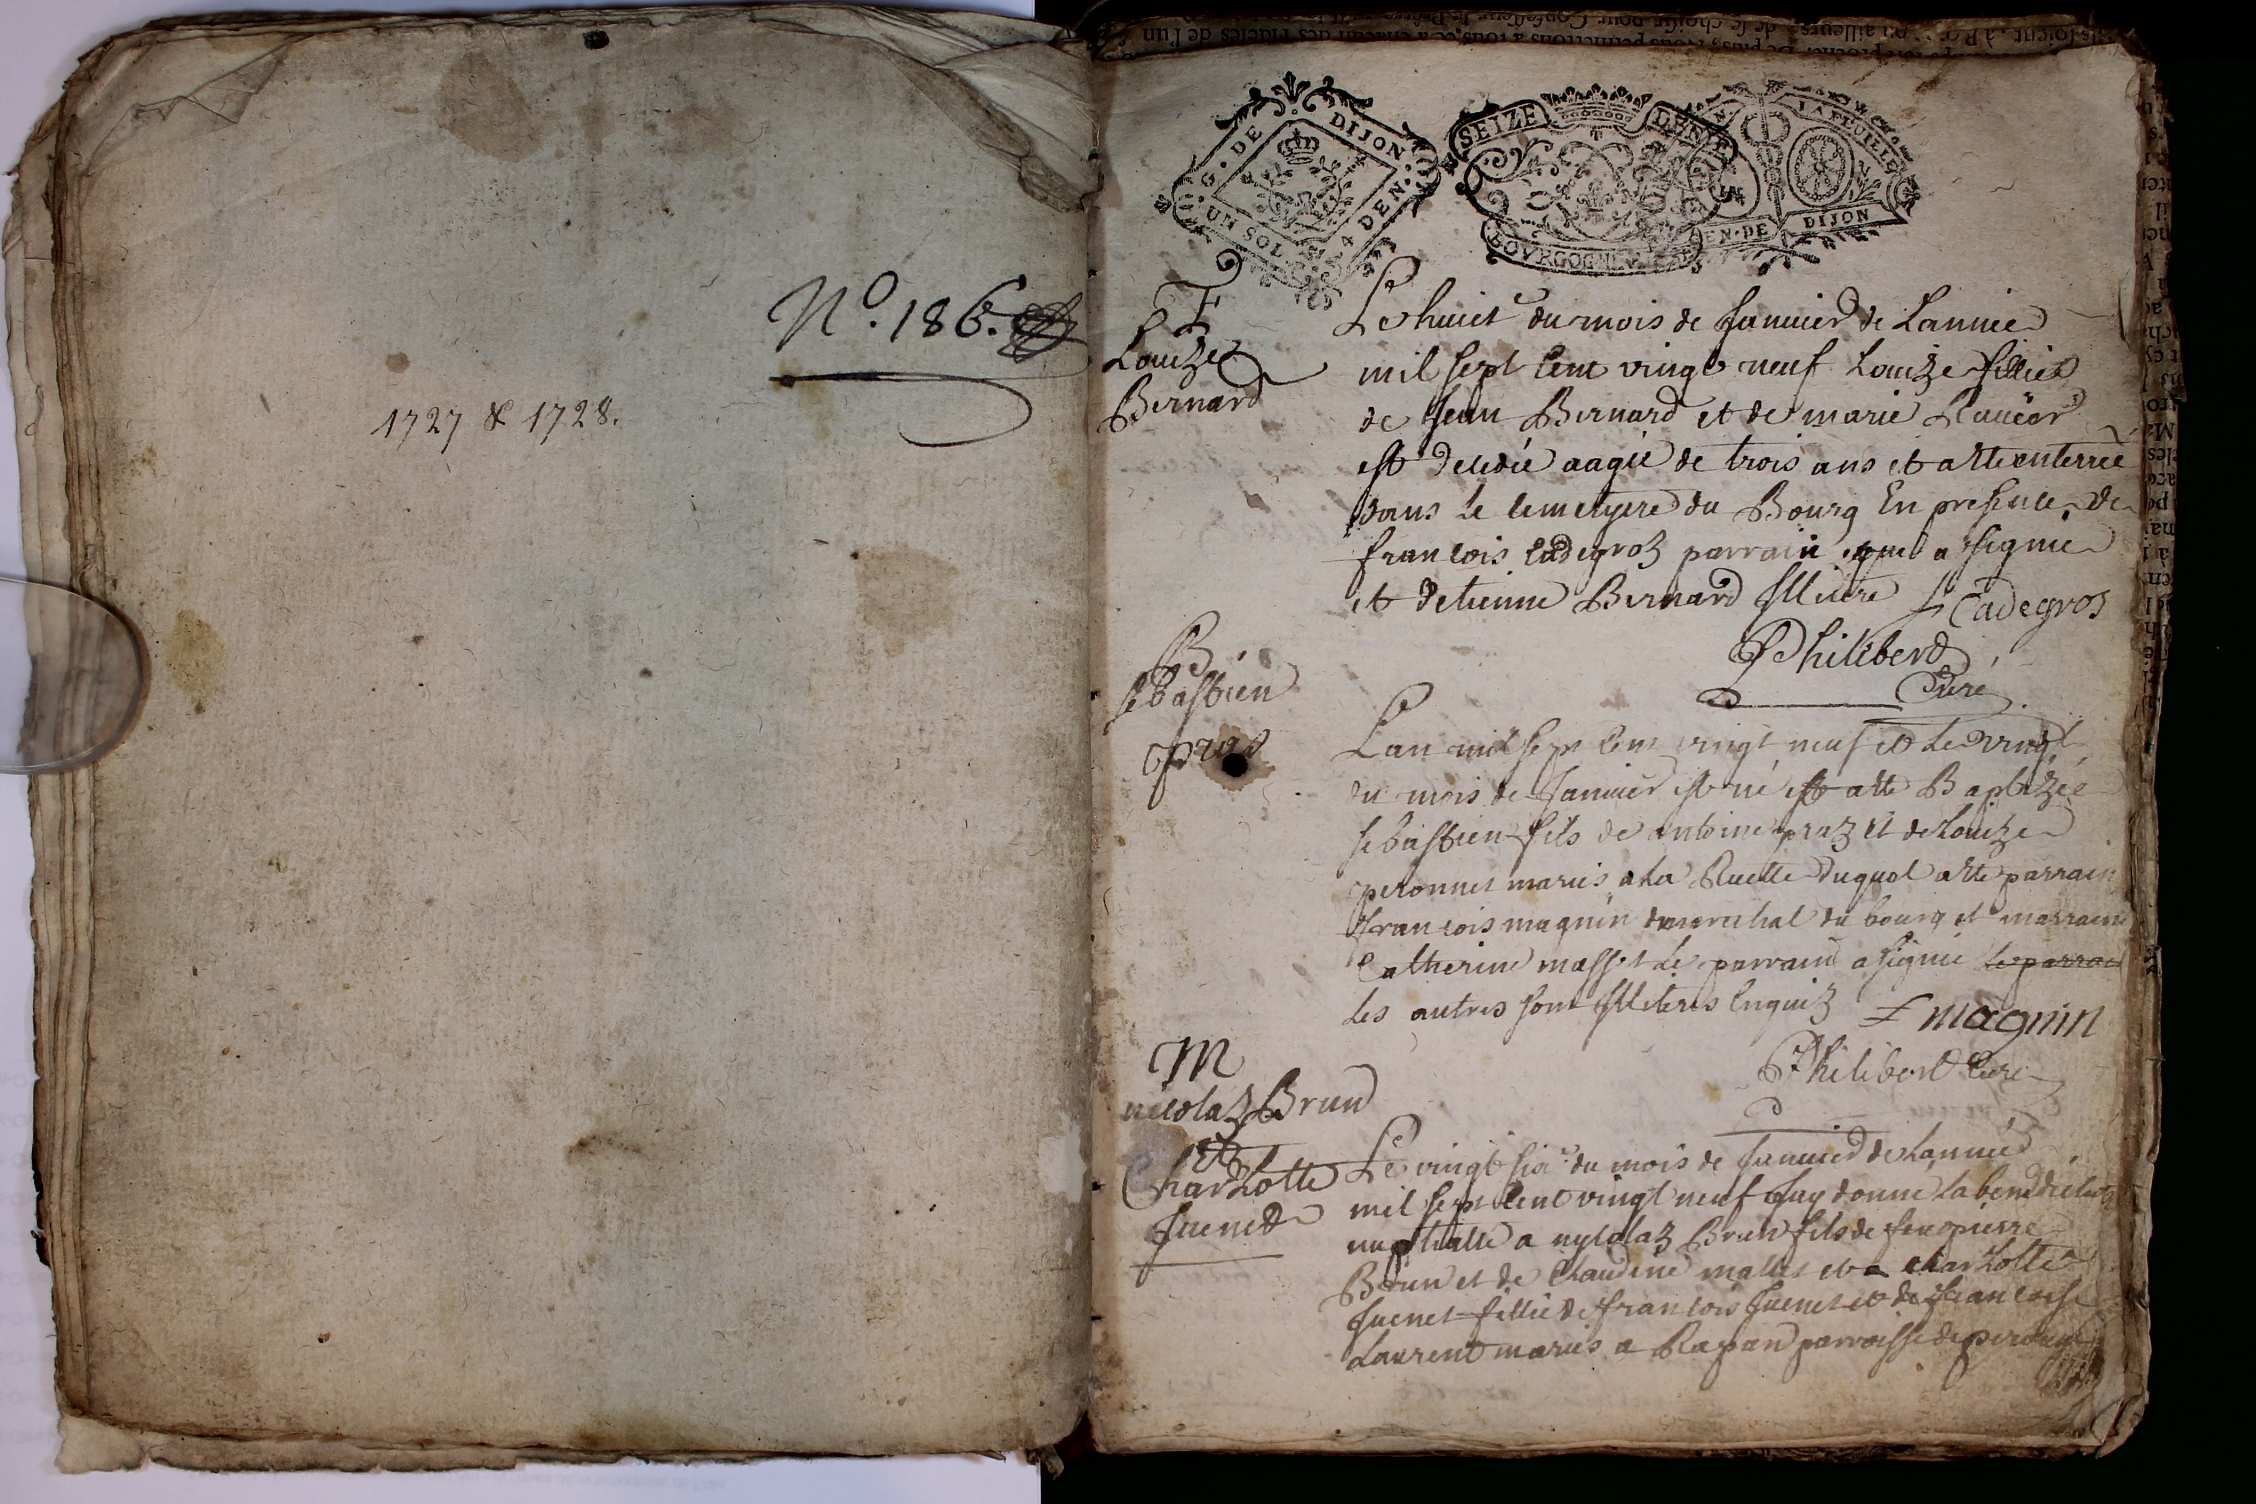 N.º 186.
1727 & 1728.
G. DE DIJON
UN SOL 4 DEN.
SEIZE DEN
BOVRGOGNE
LA FEUILLE
EN. DE DIJON
Louize
Bernard
Le huict du mois de Januier de Lannee
mil sept Cent vingt neuf Louize fillie
de Jean Bernard et de marie
est decedée aagée de trois ans et a esté enterrée
dans le Cemetyere du Bourg En presence de
francois Cadegroz parrain qui a signie
et detienne Bernard Illitere f Cadegros
Philiberd
Curé
B
sebastien
praz
Lan mil sept Cent vingt neuf et le vingt
du mois de Januier est né est a tte Baptizée
sebastien fils de antoine praz et de Louize
peronnet mariés a La Ruette duquel a tte parrain
francois magnin marechal du bourg et marraine
Catherine masset Le parrain a signié Le parrain
Les autres sont Illiteres Enquiz F magnin
Philiberd Curé
M
nicolaz Brun
et
Charlotte
Juenet
Le vingt six du mois de Januier de Lannée
mil sept Cent vingt neuf Jay donne La benediction
nuptialle a nycolaz Brun fils de feu pierre
Brun et de Claudine mallet et a Charlotte
Juenet fillie de francois Juenet et de francoise
Laurent mariés a Rapan parroisse de